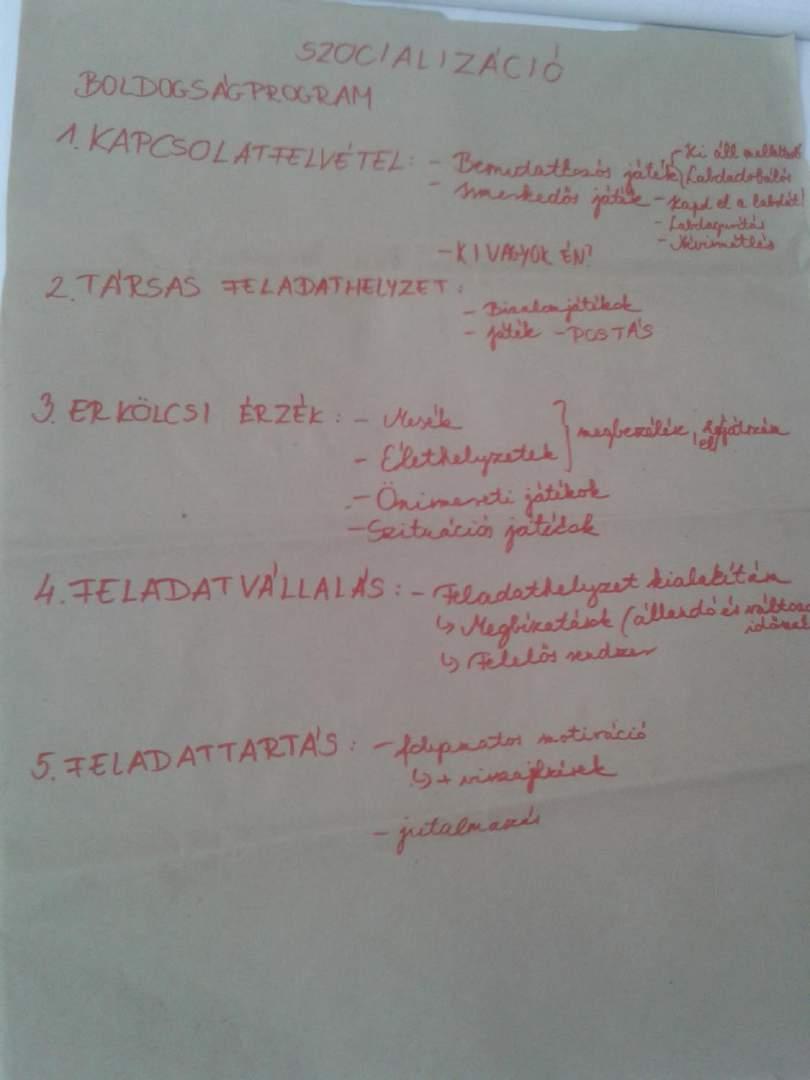 SZOCIALIZÁCIÓ
BOLDOGSÁGPROGRAM
1. KAPCSOLATFELVÉTEL: - Bemutatkozós játék - Ki áll mellettem
Labdadobálós
- Ismerkedős játék - Kapd el a labdát!
- Labdagurítás
- Névismétlés
- KI VAGYOK ÉN?
2. TÁRSAS FELADATHELYZET:
- Bizalomjátékok
- játék - POSTÁS
3. ERKÖLCSI ÉRZÉK: - Mesék
- Élethelyzetek } megbeszélése, eljátszása
- Önismereti játékok
- Szituációs játékok
4. FELADATVÁLLALÁS: - Feladathelyzet kialakítása
↳ Megbízatások (állandó és
↳ Felelős rendszer
5. FELADATTARTÁS: - folyamatos motiváció
↳ + visszajelzések
- jutalmazás